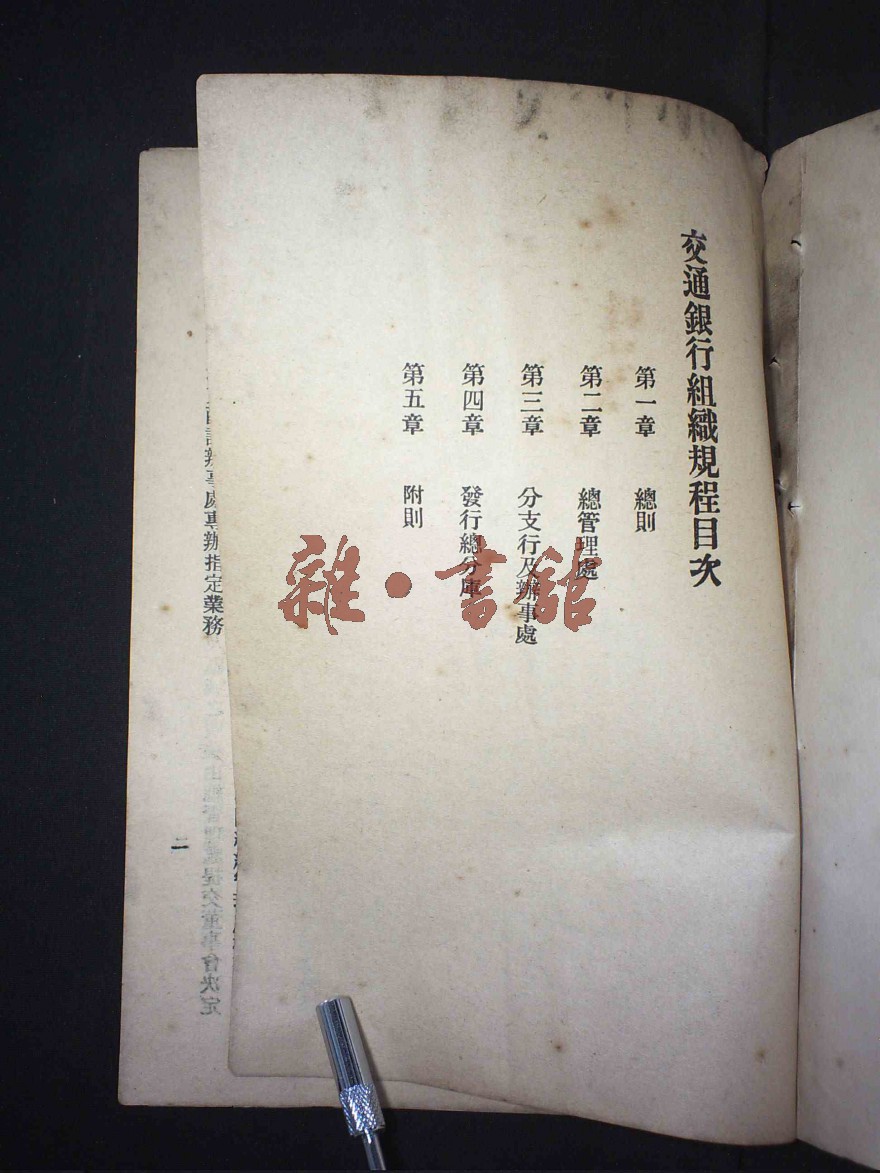 交通銀行組織規程目次
第一章 總則
第二章 總管理處
第三章 分支行及辦事處
第四章 發行總分庫
第五章 附則
雜·書館
辦事處專辦指定業務
提交董事會決定
二